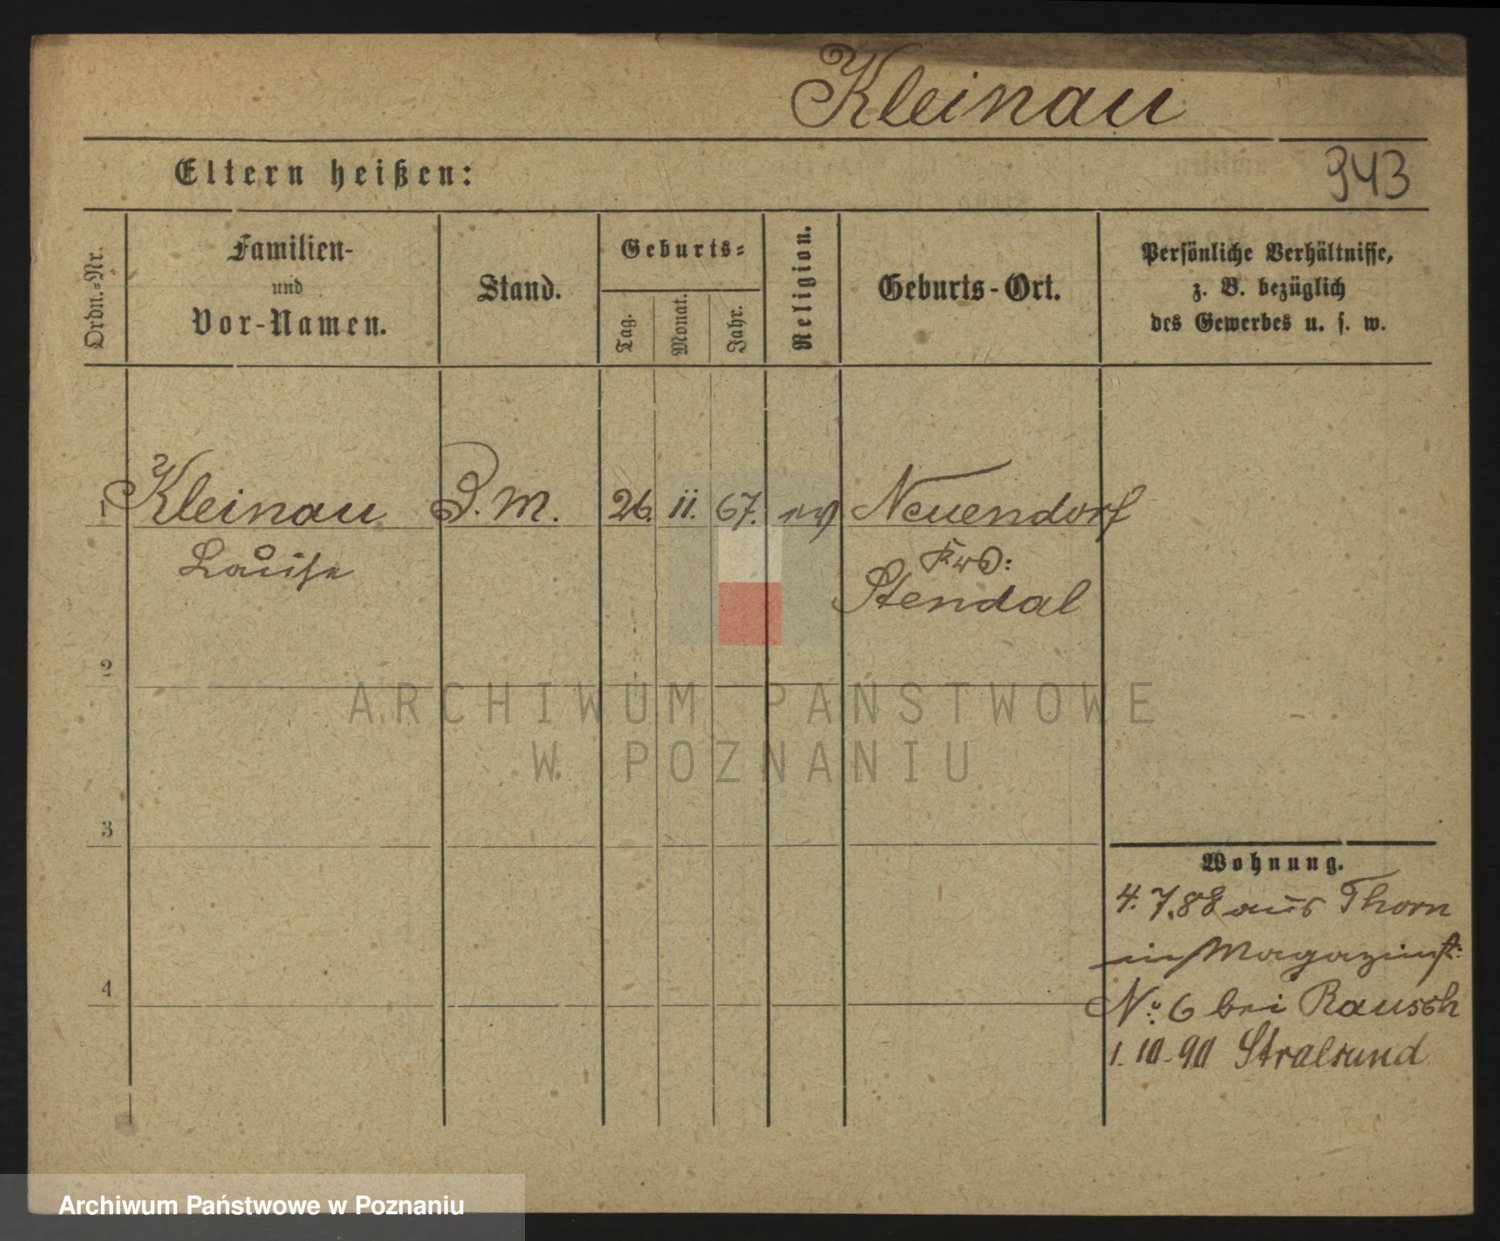 Kleinau
Eltern heißen:
943
Ordn.-Nr.
Familien-
und
Vor-Namen.
Stand.
Geburts-
Tag.
Monat.
Jahr.
Religion.
Geburts-Ort.
Persönliche Verhältnisse,
z. B. bezüglich
des Gewerbes u. s. w.
1 Kleinau D. M. 26. 11. 67. ev Neuendorf
Louise
Krs:
Stendal
2
3
4
Wohnung.
4. 7. 88 aus Thorn
in Magazinst:
No: 6 bei Rausch
1. 10. 90 Stralsund
ARCHIWUM PAŃSTWOWE
W POZNANIU
Archiwum Państwowe w Poznaniu